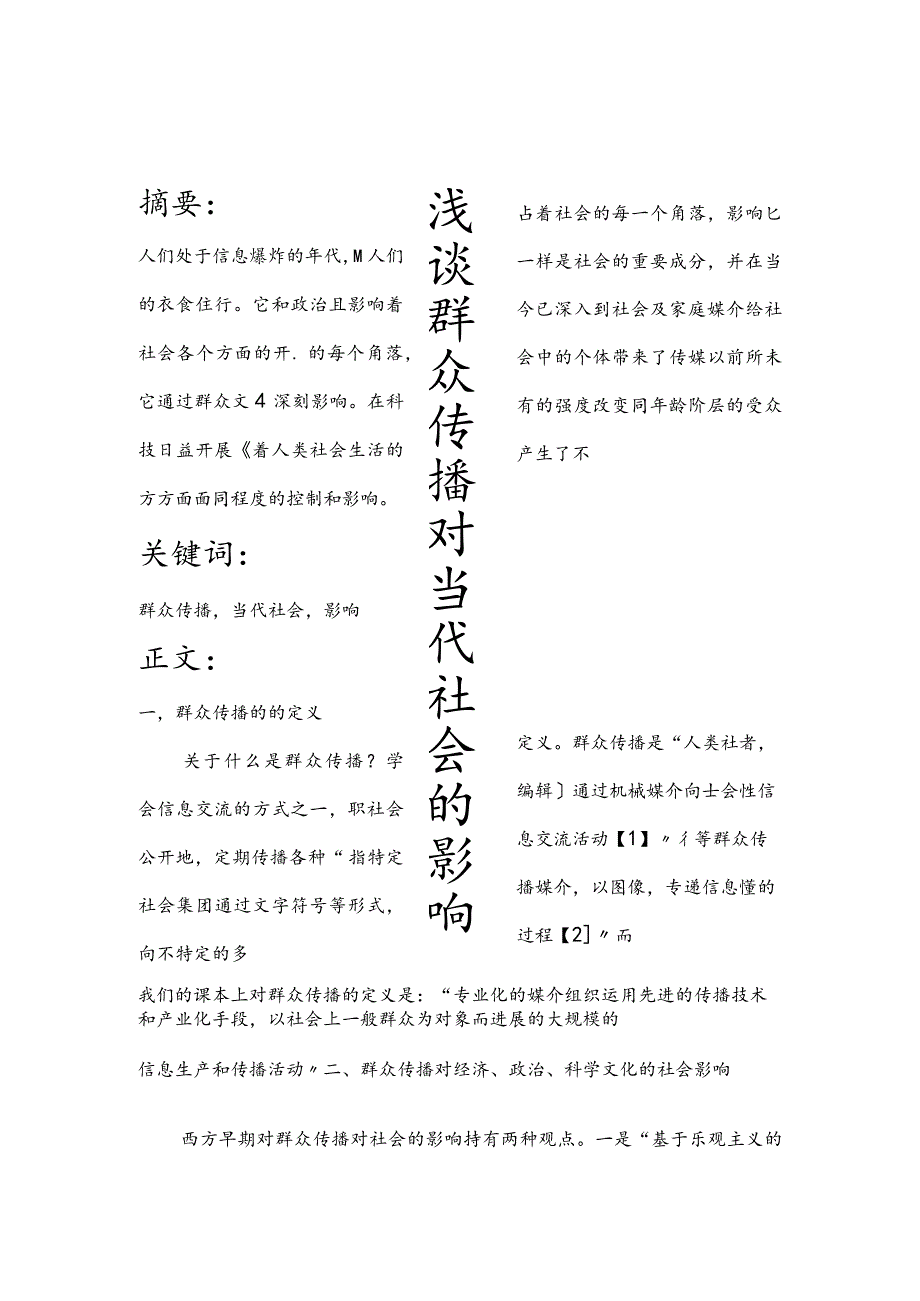 浅谈群众传播对当代社会的影响
摘要：
人们处于信息爆炸的年代,M人们
的衣食住行。它和政治且影响着
社会各个方面的开．的每个角落，
它通过群众文4 深刻影响。在科
技日益开展《着人类社会生活的
方方面面同程度的控制和影响。
占着社会的每一个角落，影响匕
一样是社会的重要成分，并在当
今已深入到社会及家庭媒介给社
会中的个体带来了传媒以前所未
有的强度改变同年龄阶层的受众
产生了不
关键词：
群众传播，当代社会，影响
正文：
一，群众传播的的定义
关于什么是群众传播？学
会信息交流的方式之一，职社会
公开地，定期传播各种“ 指特定
社会集团通过文字符号等形式，
向不特定的多
定义。群众传播是“人类社者，
编辑〕通过机械媒介向士会性信
息交流活动【1】〃彳等群众传
播媒介，以图像，专递信息懂的
过程【2］〃而
我们的课本上对群众传播的定义是：“专业化的媒介组织运用先进的传播技术
和产业化手段，以社会上一般群众为对象而进展的大规模的
信息生产和传播活动〃二、群众传播对经济、政治、科学文化的社会影响
西方早期对群众传播对社会的影响持有两种观点。一是“基于乐观主义的